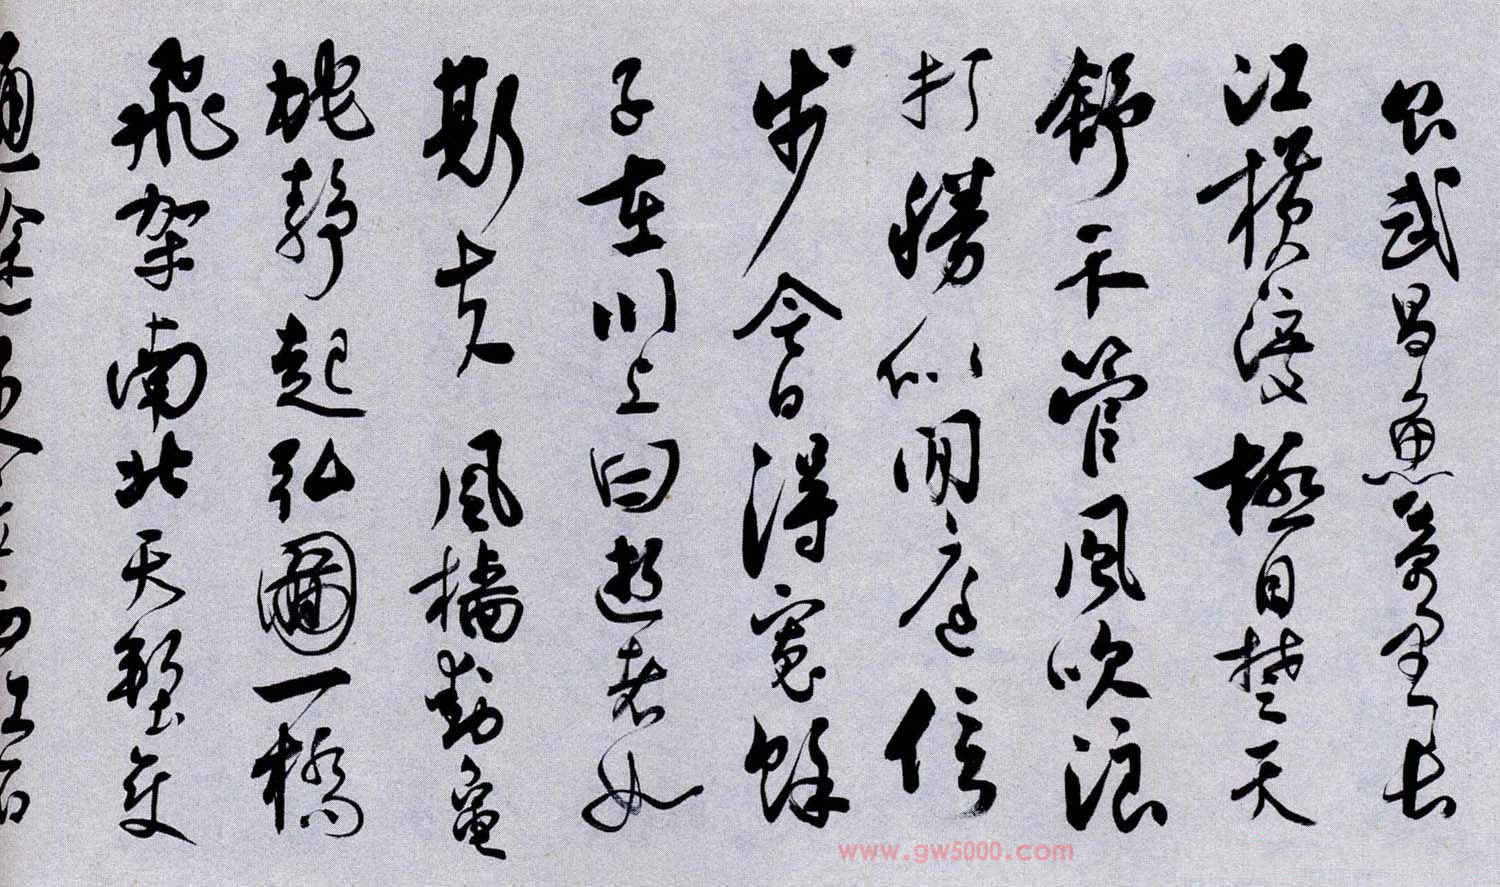 食武昌魚萬里長
江橫渡極目楚天
舒不管風吹浪
打勝似閒庭信
步今日得寬餘
子在川上曰逝者如
斯夫 風檣動龜
蛇靜起弘圖一橋
飛架南北天塹變
通途更立西江石
www.gw5000.com